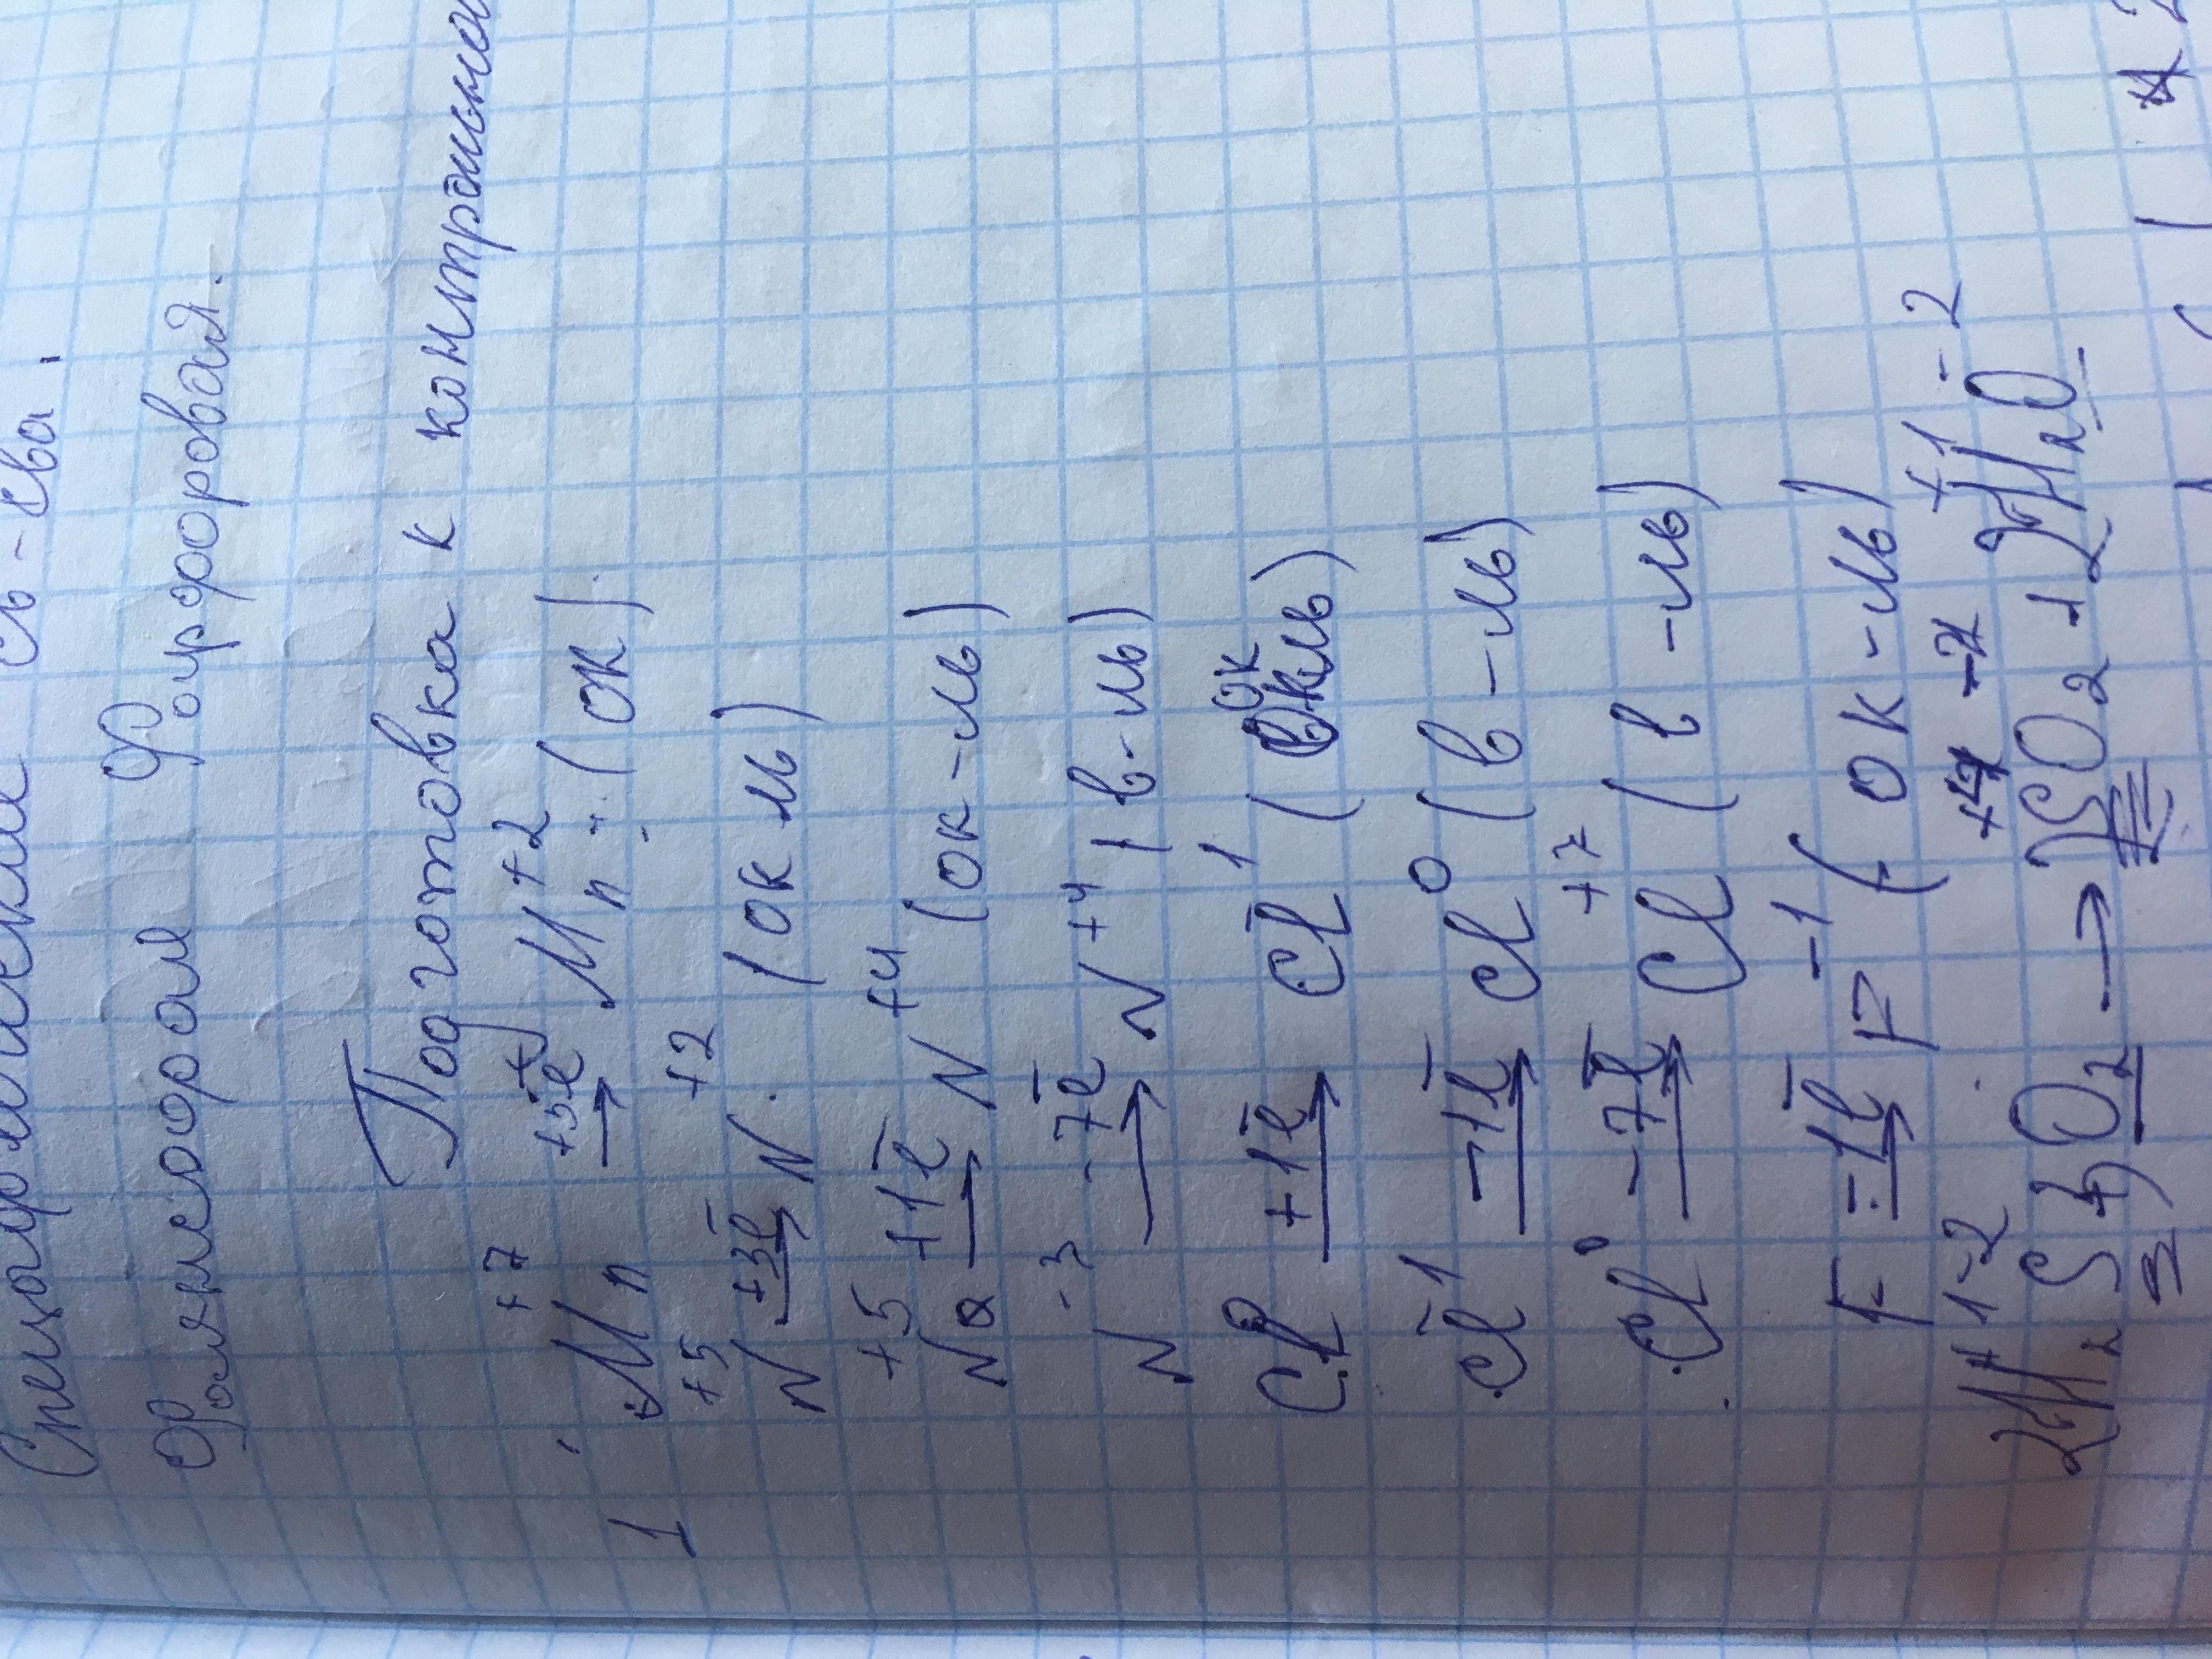 Специфические св-ва.
Фосфорная
Подготовка к контрольной
1. Mn +7 +5e̅ → Mn +2 (ок).
N +5 +3e̅ → N +2 (ок ль)
N +5 +1e̅ → N +4 (ок-ль)
N -3 -7e̅ → N +4 (в-ль)
Cl 0 +1e̅ → Cl -1 (ок ль)
Cl -1 -1e̅ → Cl 0 (в-ль)
Cl 0 -7e̅ → Cl +7 (в-ль)
F =1e̅ → F -1 (ок-ль)
+1 -2 +4 -2 +1 -2
2H2S + 3O2 → 2SO2 + 2H2O